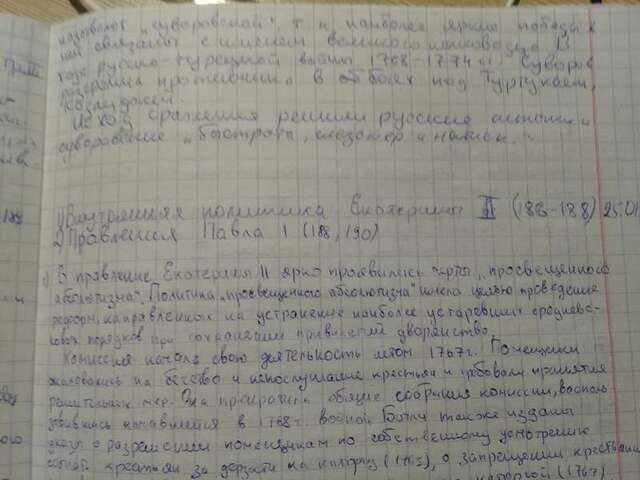 называют "суворовской", т.к. наиболее яркие победы в
ней связаны с именем великого полководца. В
ходе русско-турецкой войны 1768-1774 гг. Суворов
разгромил противника в боях под Туртукаем,
Козлуджей.
Исход сражения решили русские
суворовские "быстрота, глазомер и натиск".
1) Внутренняя политика Екатерины II (186-188) 25.01
2) Правления Павла I (188, 190)
1) В правление Екатерины II ярко проявились черты "просвещенного
абсолютизма". Политика "просвещенного абсолютизма" имела целью проведение
реформ, направленных на устранение наиболее устаревших средневе-
ковых порядков при сохранении привилегий дворянства.
Комиссия начала свою деятельность летом 1767г. Помещики
жаловались на бегство и непослушание крестьян и требовали принятия
решительных мер. Она прекратила общие собрания комиссии, восполь-
зовавшись начавшейся в 1768г. войной. Были также изданы
указы о разрешении помещикам по собственному усмотрению
крестьян за дерзости на каторгу (1765), о запрещении крестьянам
(1767)